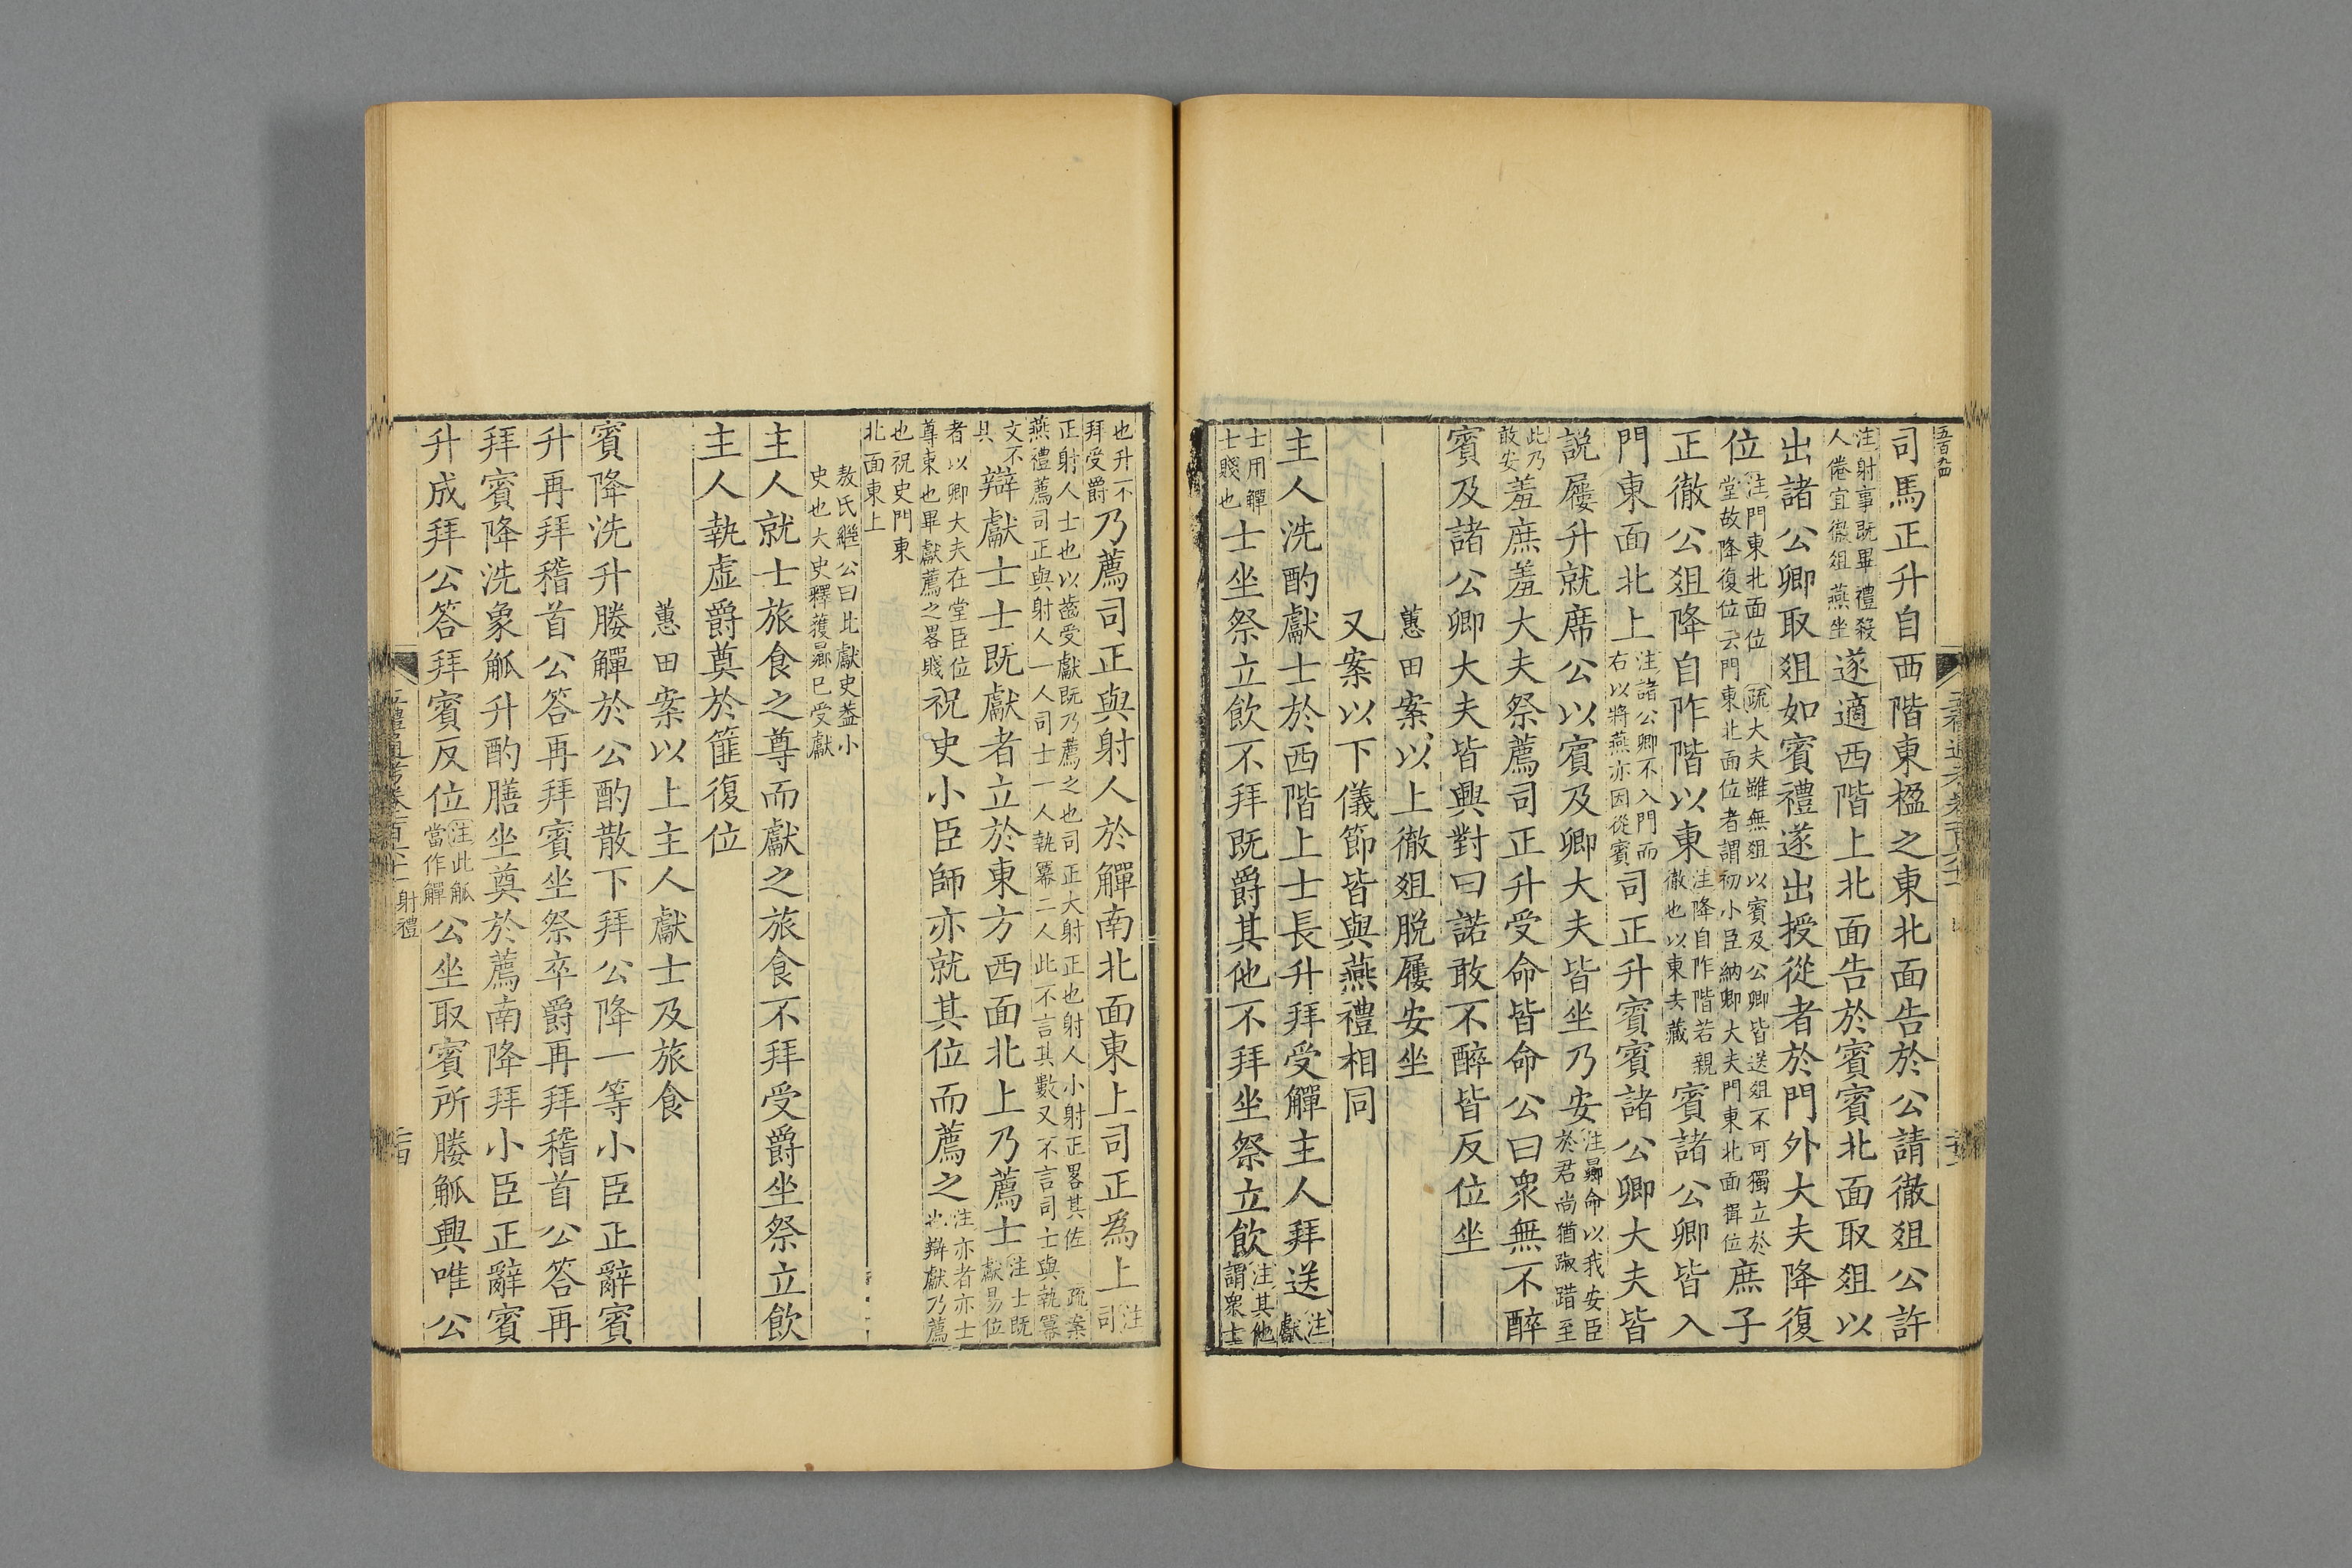 五百九四
司馬正升自西階東楹之東北面告於公請徹俎公許
注射事既畢禮殺人倦宜徹俎燕坐遂適西階上北面告於賓賓北面取俎以
出諸公卿取俎如賓禮遂出授從者於門外大夫降復
位注門東北面位疏大夫雖無俎以賓及公卿皆送俎不可獨立於堂故降復位云門東北面位者謂初小臣納卿大夫門東北面揖位庶子
正徹公俎降自阼階以東注降自阼階若親徹也以東去藏賓諸公卿皆入
門東面北上注諸公卿不入門而右以將燕亦因從賓司正升賓賓諸公卿大夫皆
說屨升就席公以賓及卿大夫皆坐乃安注曏命以我安臣於君尚猶踧踖至
此乃敢安羞庶羞大夫祭薦司正升受命皆命公曰衆無不醉
賓及諸公卿大夫皆興對曰諾敢不醉皆反位坐
蕙田案以上徹俎脫屨安坐
又案以下儀節皆與燕禮相同
主人洗酌獻士於西階上士長升拜受觶主人拜送注獻
士用觶士賤也士坐祭立飲不拜既爵其他不拜坐祭立飲注其他謂衆士
也升不拜受爵乃薦司正與射人於觶南北面東上司正為上注司
正射人士也以齒受獻既乃薦之也司正大射正也射人小射正畧其佐疏案燕禮薦司正與射人一人司士一人執冪二人此不言其數又不言司士與執冪
文不具辯獻士士既獻者立於東方西面北上乃薦士注士既獻易位
者以卿大夫在堂臣位尊東也畢獻薦之畧賤祝史小臣師亦就其位而薦之注亦者亦士也辯獻乃薦
也祝史門東北面東上
敖氏繼公曰此獻史葢小史也大史釋獲曏已受獻
主人就士旅食之尊而獻之旅食不拜受爵坐祭立飲
主人執虛爵奠於篚復位
蕙田案以上主人獻士及旅食
賓降洗升媵觶於公酌散下拜公降一等小臣正辭賓
升再拜稽首公答再拜賓坐祭卒爵再拜稽首公答再
拜賓降洗象觚升酌膳坐奠於薦南降拜小臣正辭賓
升成拜公答拜賓反位注此觚當作觶公坐取賓所媵觚興唯公
射禮